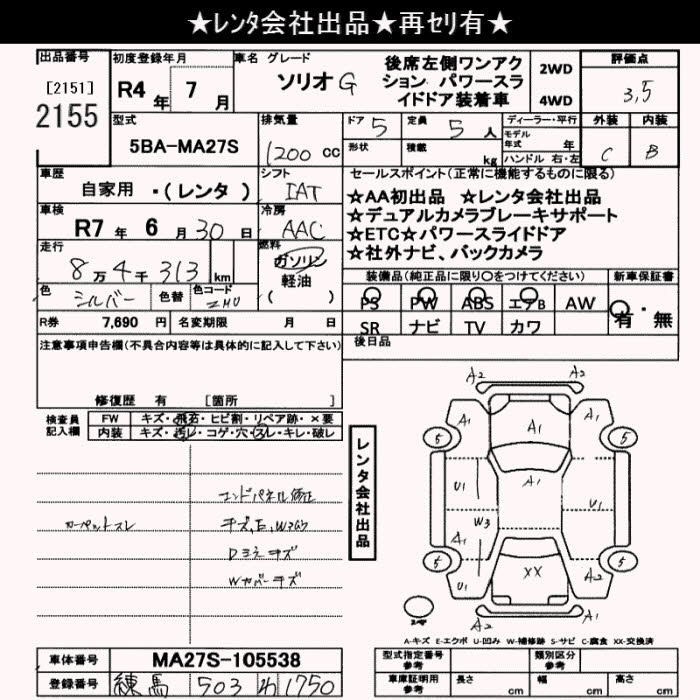 ★ﾚﾝﾀ会社出品★再ｾﾘ有★
出品番号 初度登録年月 車名 グレード 評価点
[2151] R4年 7月 ソリオ G 後席左側ワンアクション パワースライドドア装着車 2WD 4WD 3,5
2155
型式 排気量 ドア 5 定員 5人 ディーラー・平行 外装 内装
5BA-MA27S 1200cc 形状 積載 kg モデル年式 年 C B
ハンドル 右・左
車歴 シフト セールスポイント(正常に機能するものに限る)
自家用 ・(レンタ) IAT ★AA初出品 ★レンタ会社出品
車検 冷房 ★デュアルカメラブレーキサポート
R7年 6月 30日 AAC ★ETC★パワースライドドア
走行 燃料 ★社外ナビ、バックカメラ
8万4千313km ガソリン
軽油
( )
装備品(純正品に限り〇をつけてください) 新車保証書
色 シルバー 色替 色コード ZMU PS PW ABS エアB AW 有・無
R券 7,690円 名変期限 月 日 SR ナビ TV カワ
注意事項申告欄(不具合内容等は具体的に記入して下さい) 後日品
修復歴 有 [箇所 ]
検査員記入欄 FW キズ・飛石・ヒビ割・リペア跡・×要
内装 キズ・汚レ・コゲ・穴・スレ・キレ・破レ
レンタ会社出品
カーペットスレ
エンドパネル修正
キズ,E,W
Dミラーキズ
Wカバーキズ
A2 A2
A1 A1 A1
5 5
A1
U1 U1
W3
A1
5 5
U1 XX A2
A2 A1
スペア
A-キズ E-エクボ U-凹み W-補修跡 S-サビ C-腐食 XX-交換済
車体番号 MA27S-105538 型式指定番号 参考 類別区分 参考
登録番号 練馬 503 わ 1750 車庫証明用 参考 長さ cm 幅 cm 高さ cm